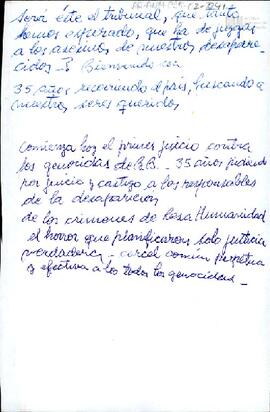 Será éste el tribunal, que tanto
hemos esperado, que ha de juzgar
a los asesinos de nuestros desapare-
cidos -- Bienvenido sea
35 años recorriendo el país, buscando a
nuestros seres queridos
Comienza hoy el primer juicio contra
los genocidas de B.B. - 35 años pidiendo
por juicio y castigo a los responsables
de la desaparición
de los crímenes de lesa Humanidad
el horror que planificaron solo justicia
verdadera - carcel común perpetua
y efectiva a los todos los genocidas -